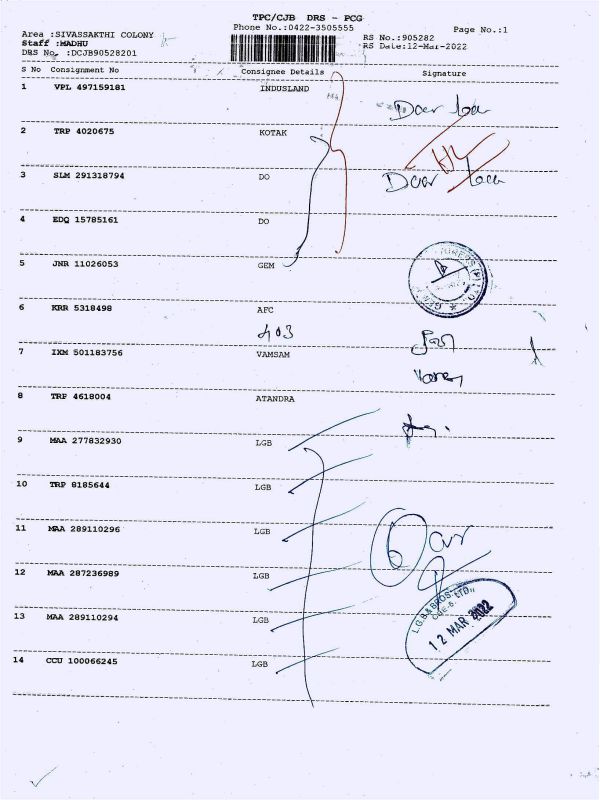 TPC/CJB DRS - PCG
Phone No.:0422-3505555
Page No.:1
Area :SIVASSAKTHI COLONY
RS No.:905282
Staff :MADHU
RS Date:12-Mar-2022
DRS No. :DCJB90528201
S No Consignment No Consignee Details Signature
1 VPL 497159181 INDUSLAND
Door loc
2 TRP 4020675 KOTAK
3 SLM 291318794 DO
Door loc
4 EDQ 15785161 DO
5 JNR 11026053 GEM
6 KRR 5318498 AFC
403
7 IXM 501183756 VAMSAM
8 TRP 4618004 ATANDRA
9 MAA 277832930 LGB
10 TRP 8185644 LGB
11 MAA 289110296 LGB
6
12 MAA 287236989 LGB
13 MAA 289110294 LGB
L.G.B. & BROS. LTD.,
CBE-6.
12 MAR 2022
14 CCU 100066245 LGB